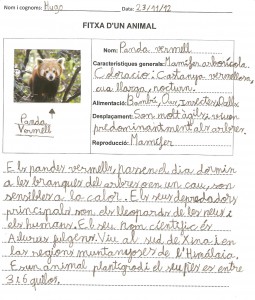 Nom i cognoms: Hugo Data: 23/11/12
FITXA D'UN ANIMAL
Nom: Panda vermell
Característiques generals: Mamífer arborícola.
Coloració: Castanya vermellosa,
cua llarga, nocturn.
Alimentació: Bambú, Ous, insectes,
Desplaçament: Son molt àgils, viuen
predominantment als arbres.
Reproducció: Mamífer
Panda
Vermell
Els pandes vermells, pasen el dia dormin
a les branques del arbres o en un cau, son
sensibles a la calor. Els seus depredadors
principals són els lleopards de les neus i
els humans. El seu nom científic és
Ailurus fulgens. Viu al sud de Xina i en
las regions muntanyoses de l'Himàlaia.
Es un animal plantígrad i el su pes es entre
3 i 6 quilos.